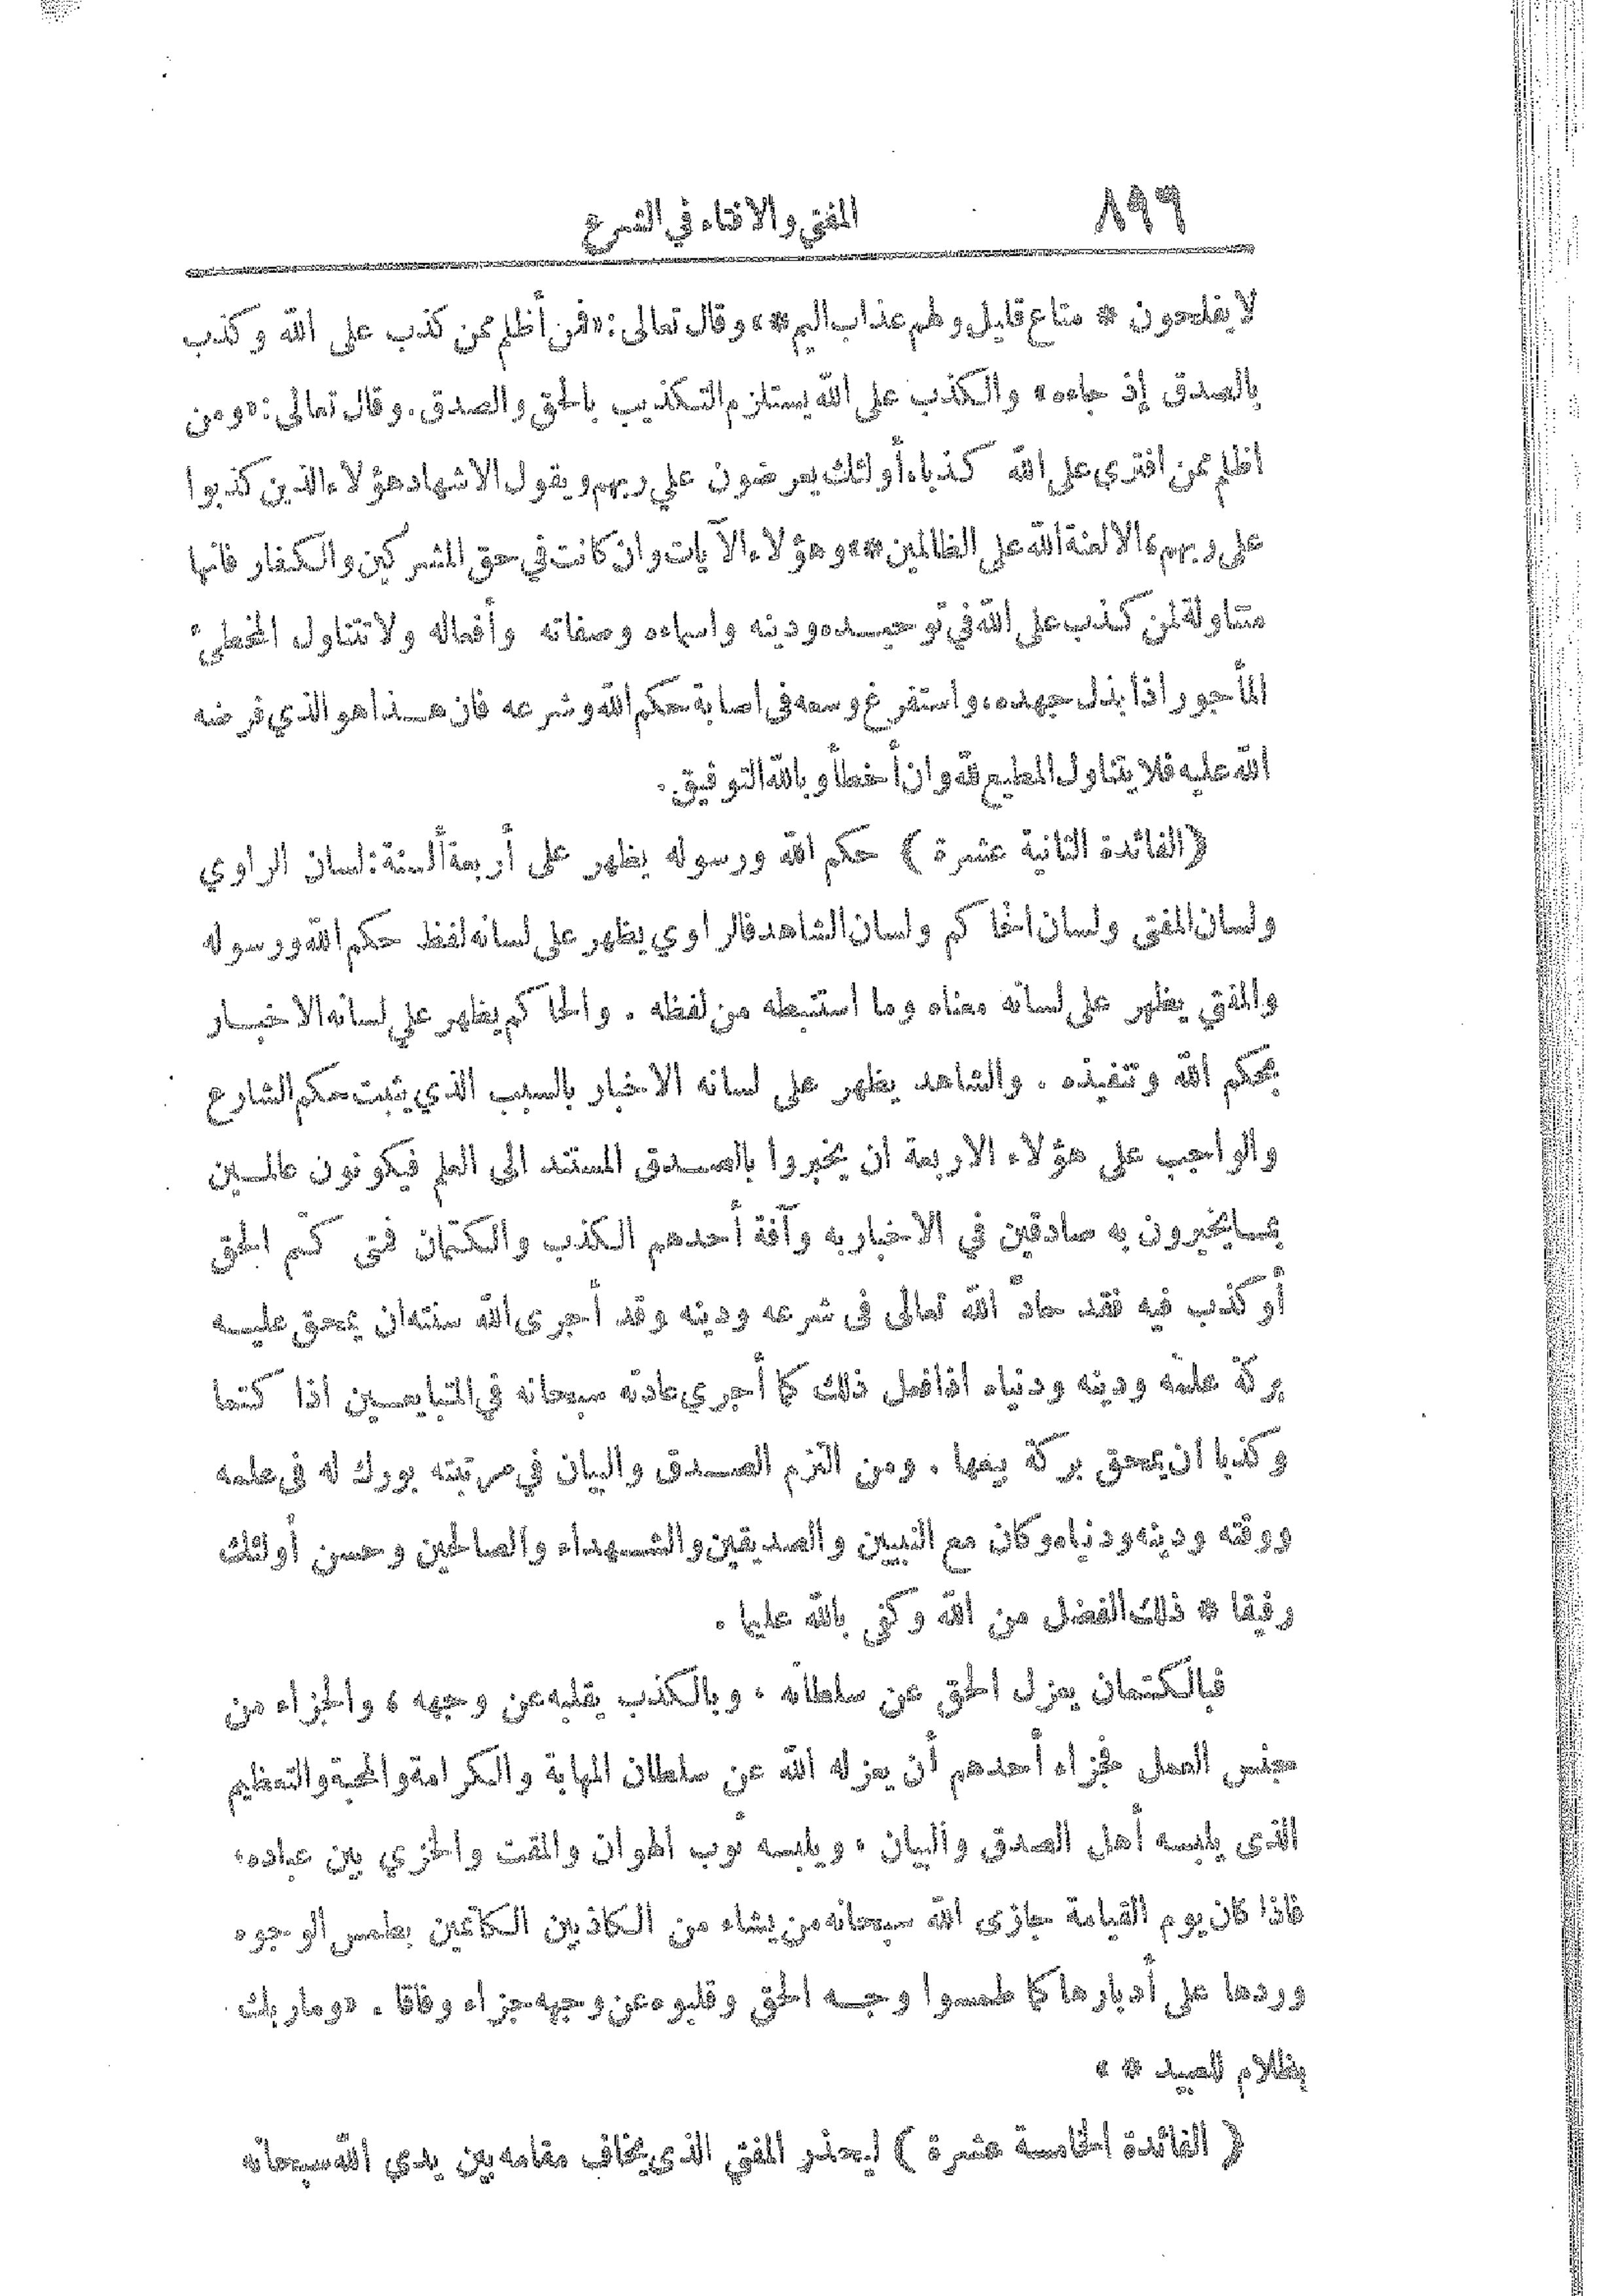 ٨٩٦ المفتي والافتاء في الشرع
لا يفلحون * متاع قليل ولهم عذاب اليم *» وقال تعالى: «فمن أظلم ممن كذب على الله وكذب
بالصدق إذ جاءه» والكذب على الله يستلزم التكذيب بالحق والصدق. وقال تعالى: «ومن
اظلم ممن افترى على الله كذبا، أولئك يعرضون على ربهم ويقول الاشهاد هؤلاء الذين كذبوا
على ربهم، الا لعنة الله على الظالمين *» وهؤلاء الآيات وان كانت في حق المشركين والكفار فانها
متناولة لمن كذب على الله في توحيده ودينه واسماءه وصفاته وأفعاله ولا تتناول المخطئ
المأجور اذا بذل جهده، واستفرغ وسعه في اصابة حكم الله وشرعه فان هذا هو الذي فرضه
الله عليه فلا يتناول المطيع لله وان أخطأ وبالله التوفيق.
(الفائدة الثانية عشرة) حكم الله ورسوله يظهر على أربعة ألسنة: لسان الراوي
ولسان المفتى ولسان الحاكم ولسان الشاهد فالراوي يظهر على لسانه لفظ حكم الله ورسوله
والمفتي يظهر على لسانه معناه وما استنبطه من لفظه . والحاكم يظهر على لسانه الاخبار
بحكم الله وتنفيذه . والشاهد يظهر على لسانه الاخبار بالسبب الذي يثبت حكم الشارع
والواجب على هؤلاء الاربعة ان يخبروا بالصدق المستند الى العلم فيكونون عالمين
بما يخبرون به صادقين في الاخبار به وآفة أحدهم الكذب والكتمان فمتى كتم الحق
أو كذب فيه فقد حادّ الله تعالى فى شرعه ودينه وقد أجرى الله سنته ان يمحق عليه
بركة علمه ودينه ودنياه اذا فعل ذلك كما أجري عادته سبحانه في المتبايعين اذا كتما
وكذبا ان يمحق بركة بيعها . ومن التزم الصدق والبيان في مرتبته بورك له فى علمه
ووقته ودينه ودنياه وكان مع النبيين والصديقين والشهداء والصالحين وحسن أولئك
رفيقا * ذلك الفضل من الله وكفى بالله عليما .
فبالكتمان يعزل الحق عن سلطانه ، وبالكذب يقلبه عن وجهه ، والجزاء من
جنس العمل فجزاء أحدهم أن يعزله الله عن سلطان المهابة والكرامة والمحبة والتعظيم
الذى يلبسه أهل الصدق والبيان ، ويلبسه ثوب الهوان والمقت والخزي بين عباده،
فاذا كان يوم القيامة جازى الله سبحانه من يشاء من الكاذبين الكاتمين بطمس الوجوه
وردها على أدبارها كما طمسوا وجه الحق وقلبوه عن وجهه جزاء وفاقا . «وما ربك
بظلام للعبيد *»
( الفائدة الخامسة عشرة ) ليحذر المفتي الذى يخاف مقامه بين يدي الله سبحانه